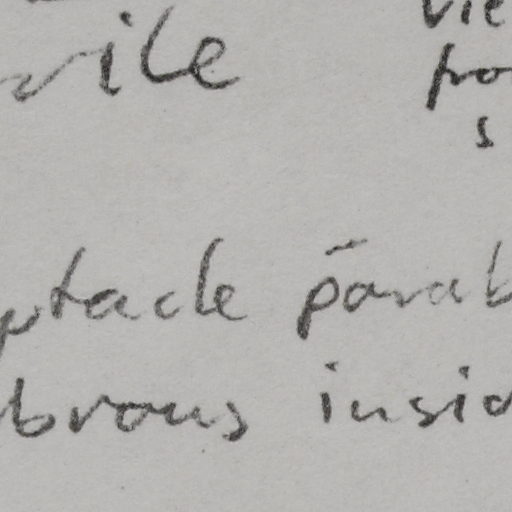 vile
vie
fro
s
ptacle parab
brous insid